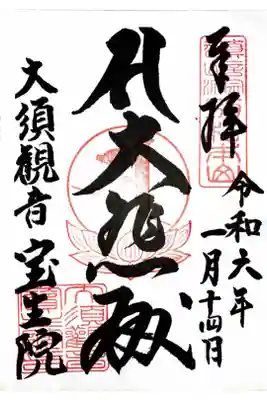 奉拝
令和六年
一月十四日
大悲殿
大須観音
宝生院